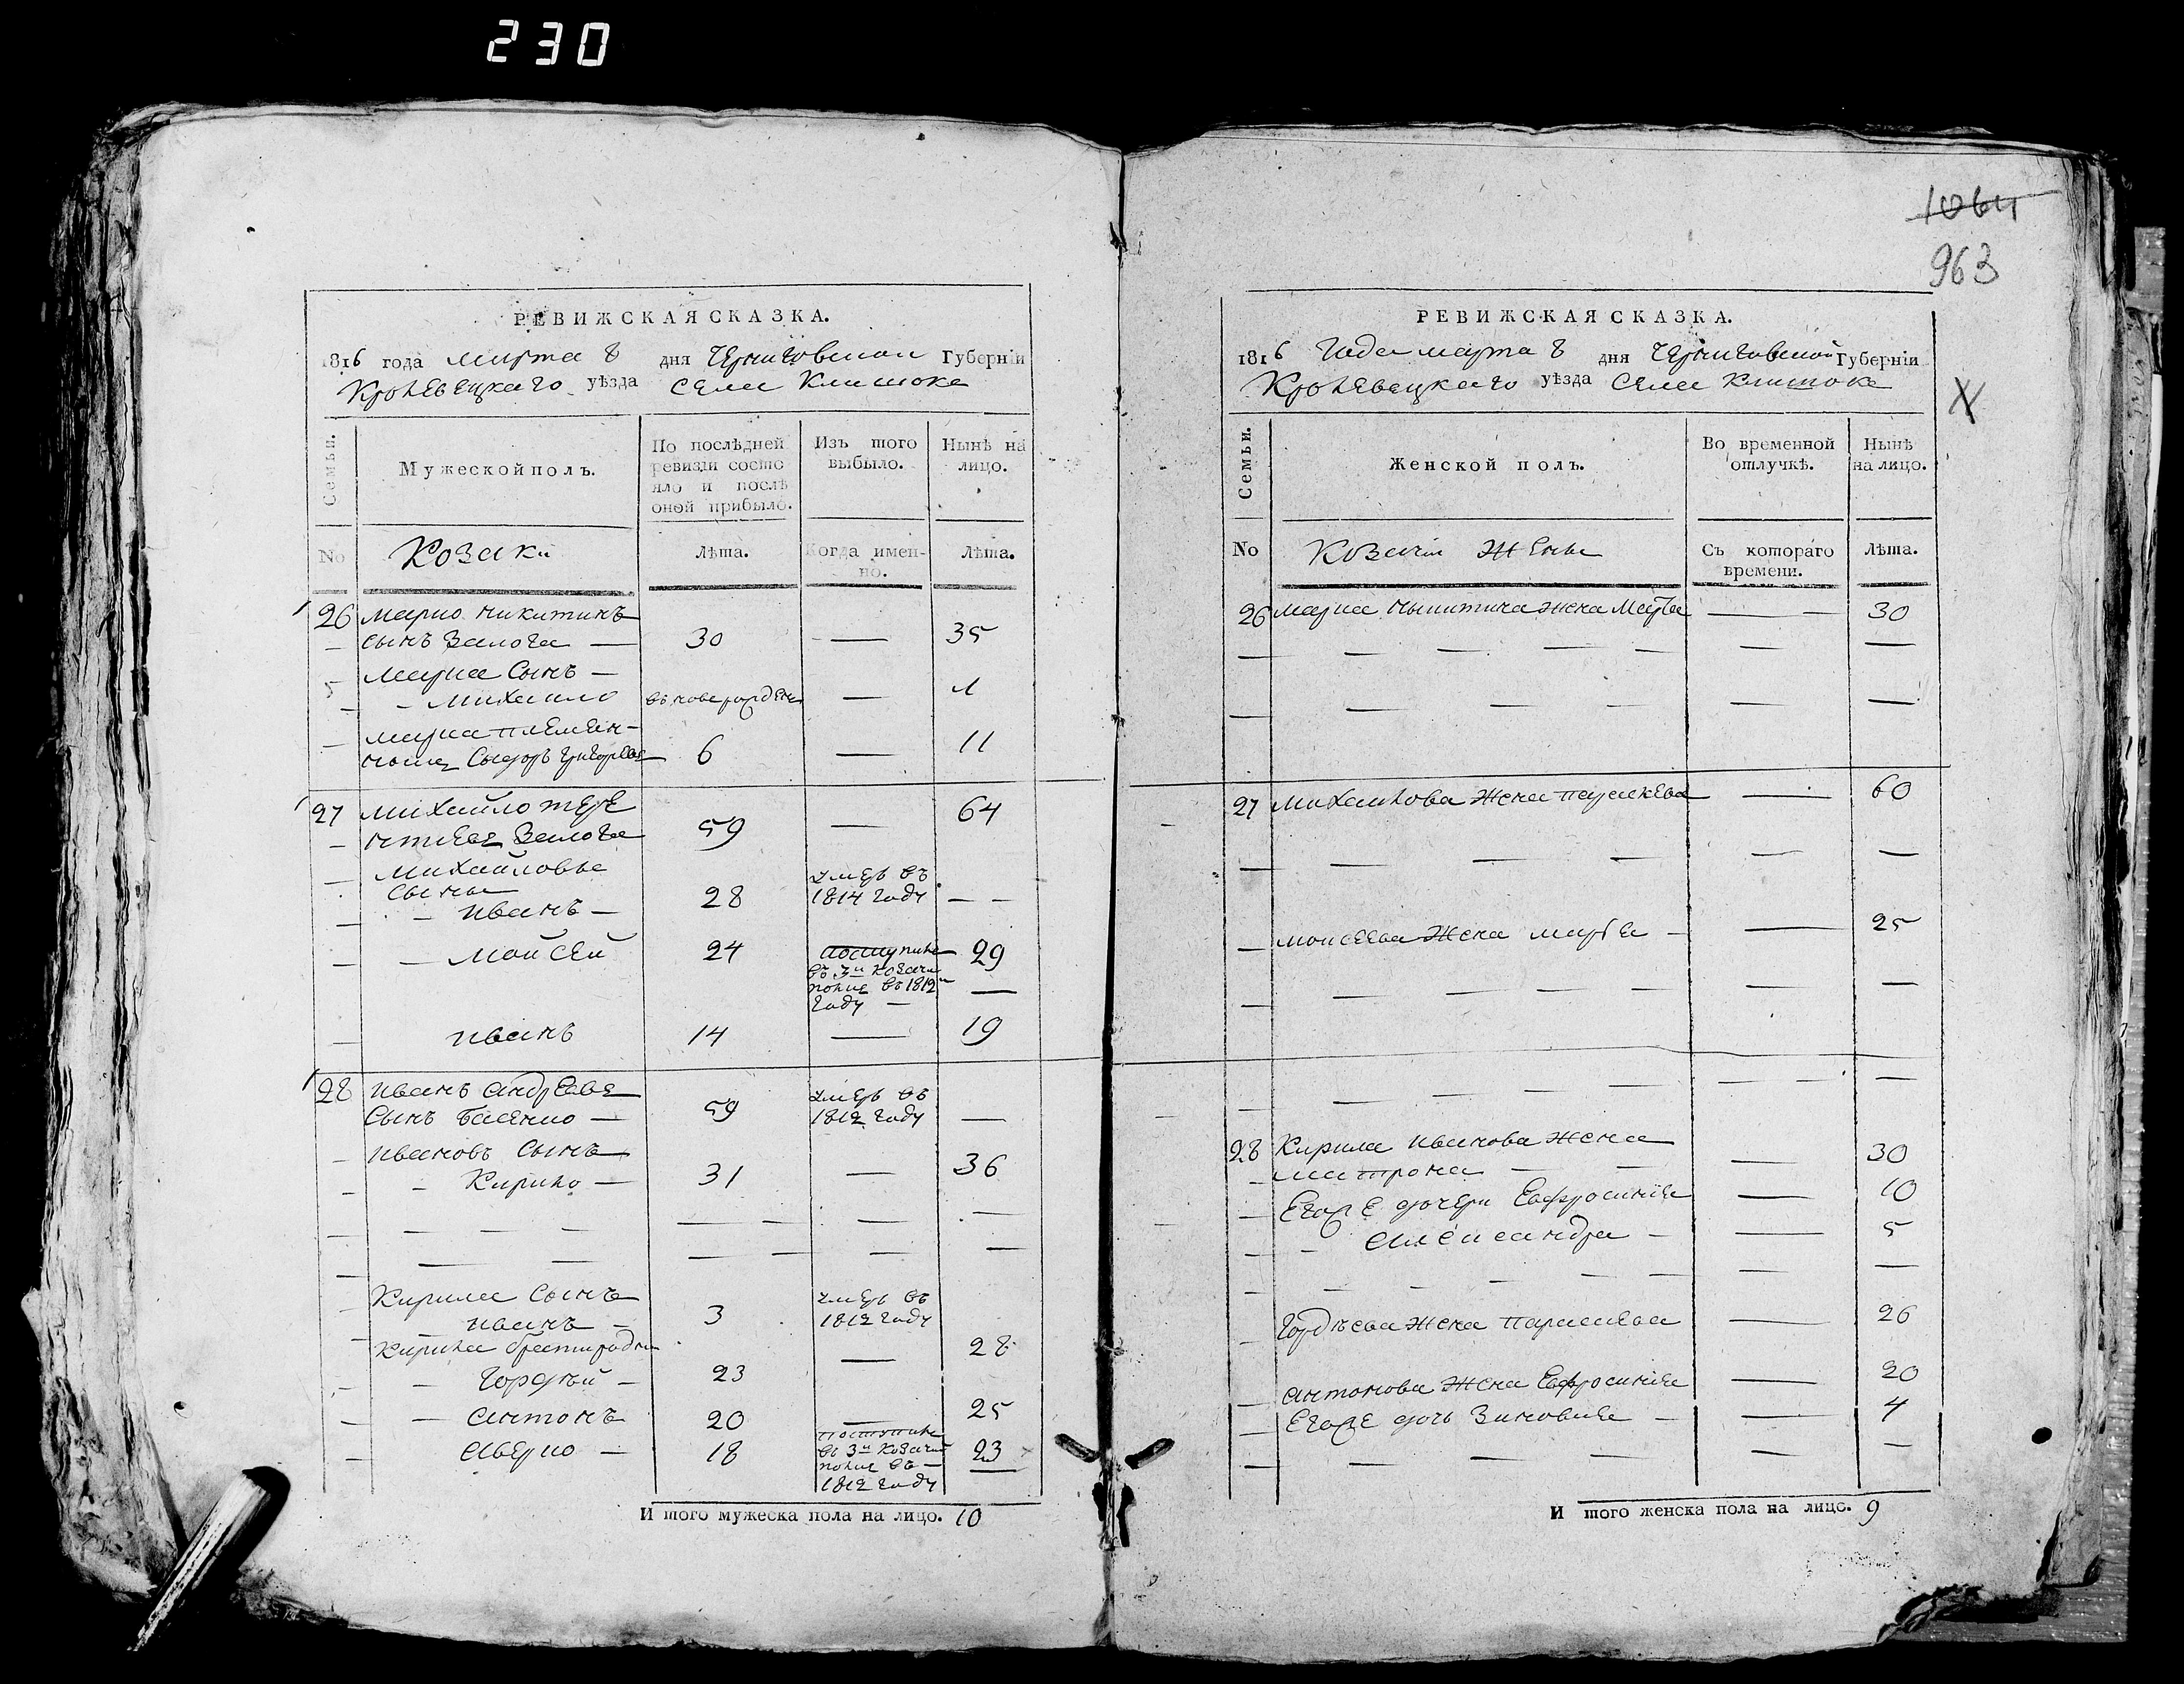 230
1064
963
РЕВИЖСКАЯ СКАЗКА.
1816 года марта 8 дня Черниговской Губерніи
Кролевецкаго уѣзда Села Клишокъ
Семьи.
Мужеской полъ.
По послѣдней ревизіи состояло и послѣ оной прибыло.
Изъ того выбыло.
Нынѣ на лицо.
No
Козаки
Лѣта.
Когда именно.
Лѣта.
26 Марко Никитинъ
сынъ Залога — 30 — 35
Марка Сынъ —
- Михайло вновь рожден — 1
Марка племен-
никъ Сидоръ Григорьевъ 6 — 11
27 Михайло Тере
нтиевъ Залога 59 — 64
Михайловы
сыны
- Иванъ — 28 умеръ въ 1814 году — —
— Мойсей 24 поступилъ въ 3й козачий полкъ въ 1812м году — 29
Иванъ 14 — 19
28 Иванъ Андреевъ
Сынъ Басенко — 59 умеръ въ 1812 году —
Ивановъ Сынъ
- Кирило — 31 — 36
Кирила Сынъ
Иванъ — 3 умеръ въ 1812 году
Кирила братьи родни
— Гордѣй — 23 — 28
— Антонъ 20 — 25
Аверко — 18 поступилъ въ 3й козачий полкъ въ — 1812 году 23
И того мужеска пола на лицо. 10
РЕВИЖСКАЯ СКАЗКА.
1816 Года марта 8 дня Черниговской Губерніи
Кролевецкаго уѣзда Села Клишокъ
Семьи.
Женской полъ.
Во временной отлучкѣ.
Нынѣ на лицо.
No
Козачіи Жены
Съ котораго времени.
Лѣта.
26 Марка Никитина жена Марѳа — 30
27 Михайлова Жена Параскева — 60
Моисеева Жена Марѳа — 25
28 Кирила Иванова Жена
Матрона — 30
Его же дочери Евфросиния — 10
- Александра — 5
Гордѣева Жена Параскева — 26
Антонова Жена Евфросиния — 20
Его же дочь Зиновия — 4
И того женска пола на лицо. 9